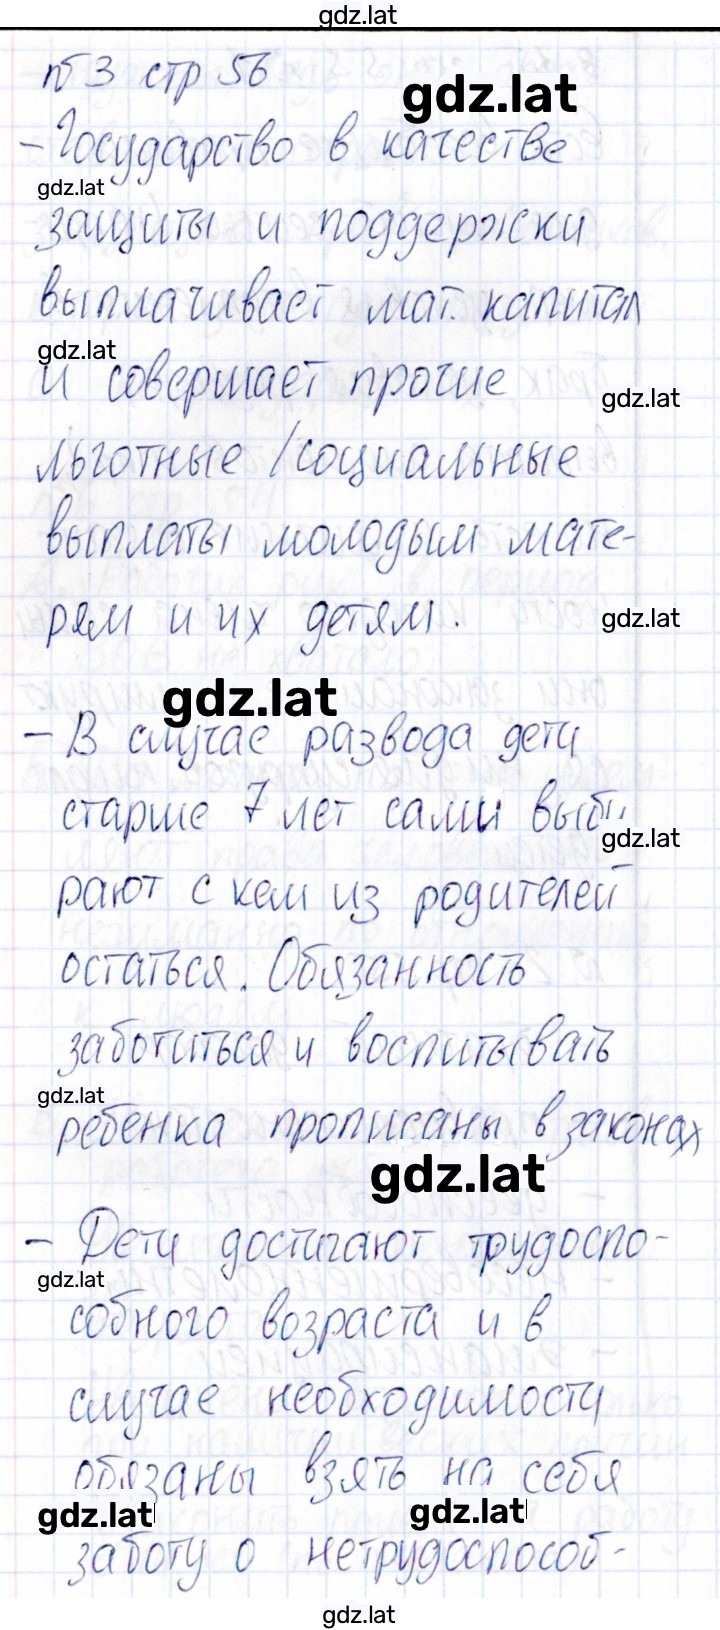 gdz.lat
№3 стр 56
gdz.lat
- Государство в качестве
gdz.lat
защиты и поддержки
выплачивает мат. капитал
gdz.lat
и совершает прочие
gdz.lat
льготные /социальные
выплаты молодым мате-
рям и их детям.
gdz.lat
gdz.lat
- В случае развода дети
старше 7 лет сами выби
gdz.lat
рают с кем из родителей
остаться. Обязанность
заботиться и воспитывать
gdz.lat
ребенка прописаны в законах
gdz.lat
- Дети достигают трудоспо-
gdz.lat
собного возраста и в
случае необходимости
обязаны взять на себя
gdz.lat gdz.lat
заботу о нетрудоспособ-
gdz.lat